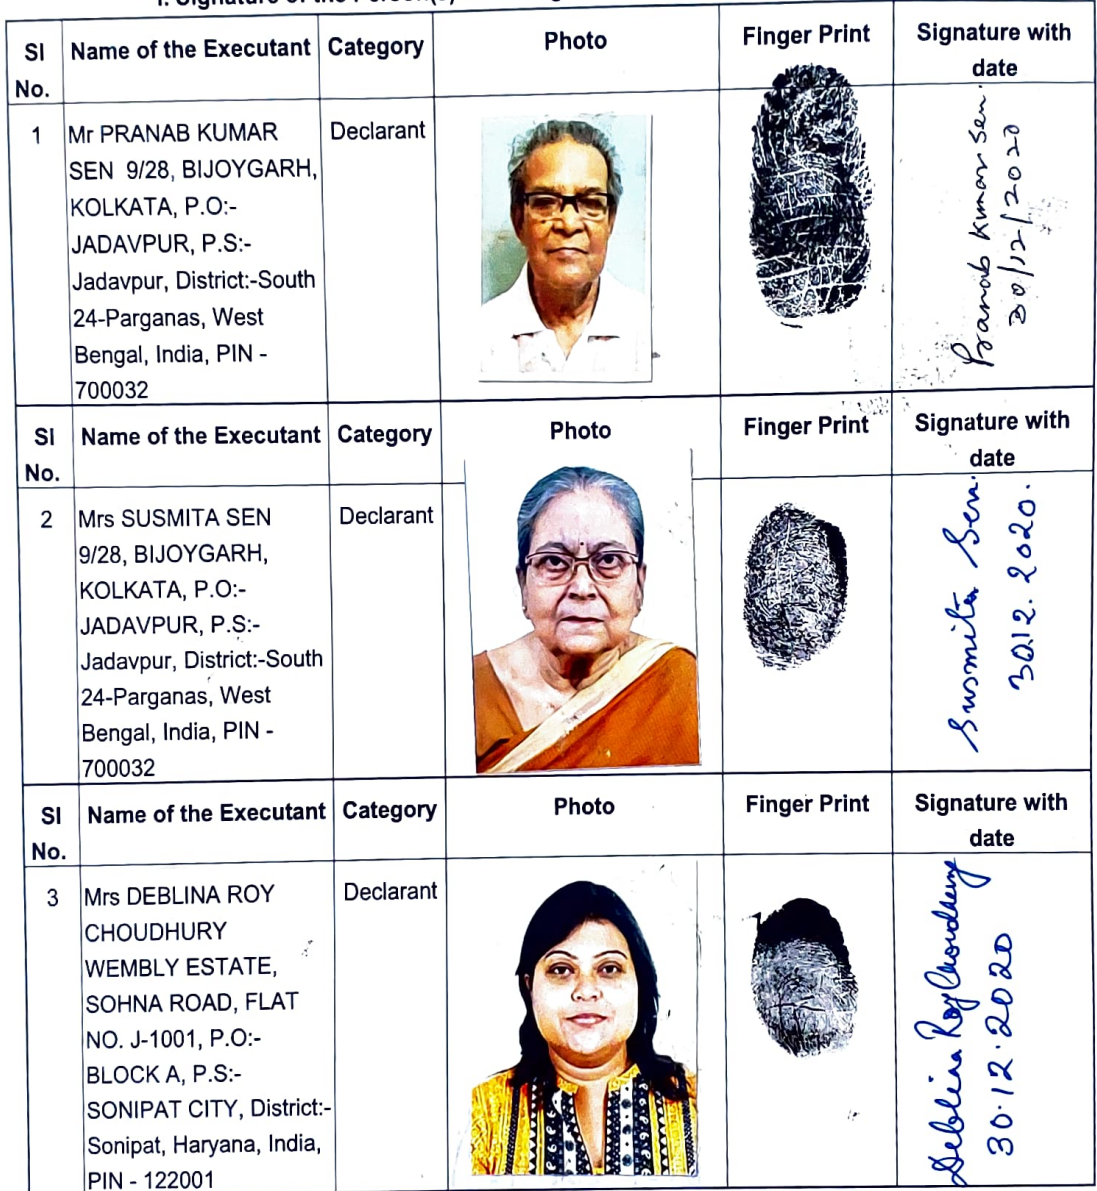 I. Signature of the Person(s)
Sl No. Name of the Executant Category Photo Finger Print Signature with date
1 Mr PRANAB KUMAR Declarant
SEN 9/28, BIJOYGARH,
KOLKATA, P.O:-
JADAVPUR, P.S:-
Jadavpur, District:-South
24-Parganas, West
Bengal, India, PIN -
700032
Pranab Kumar Sen.
30/12/2020
Sl No. Name of the Executant Category Photo Finger Print Signature with date
2 Mrs SUSMITA SEN Declarant
9/28, BIJOYGARH,
KOLKATA, P.O:-
JADAVPUR, P.S:-
Jadavpur, District:-South
24-Parganas, West
Bengal, India, PIN -
700032
Susmita Sen.
30.12.2020.
Sl No. Name of the Executant Category Photo Finger Print Signature with date
3 Mrs DEBLINA ROY Declarant
CHOUDHURY
WEMBLY ESTATE,
SOHNA ROAD, FLAT
NO. J-1001, P.O:-
BLOCK A, P.S:-
SONIPAT CITY, District:-
Sonipat, Haryana, India,
PIN - 122001
Deblina Roy Choudhury
30.12.2020